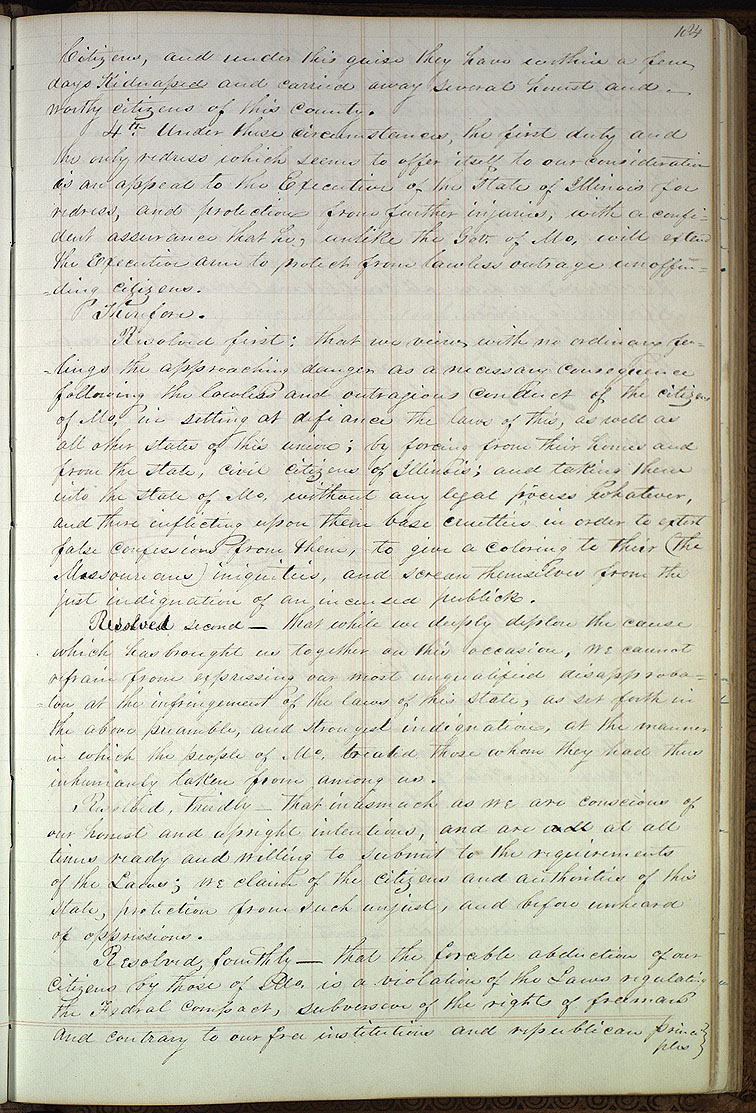 104
Citizens, and under this guise they have within a few
days Kidnaped and carried away several honest and -
worthy citizens of this county.
4th Under these circumstances, the first duty and
the only redress which seems to offer itself to our consideration
is an appeal to the Executive of the State of Illinois for
redress, and protection from further injuries, with a confi-
dent assurance that he, unlike the Gov. of Mo, will extend
the Executive arm to protect from lawless outrage unoffen-
-ding citizens.
P Therefore.
Resolved first: that we view, with no ordinary fee-
-lings the approaching danger as a necessary consequence
following the lawless and outragious conduct of the citizens
of Mo, in setting at defiance the laws of this, as well as
all other states of this union; by forcing from their homes and
from the state, civil citizens of Illinois; and taking them
into the state of Mo, without any legal process whatever,
and there inflicting upon them base cruelties in order to extort
false confessions from them, to give a coloring to their (the
Missourians) iniquities, and screan themselves from the
just indignation of an incensed publick.
Resolved second - that while we deeply deplore the cause
which has brought us together on this occasion, we cannot
refrain from expressing our most unqualified disapproba-
-ton at the infrengement of the laws of this state, as set forth in
the above preamble, and strongest indignation, at the manner
in which the people of Mo, treated those whom they had thus
inhumanly taken from among us.
Resolved, thirdly - that inasmuch as we are conscious of
our honest and upright intentions, and are all at all
times ready and willing to submit to the requirements
of the Laws; we claim of the citizens and authorities of this
state, protection from such unjust, and before unheard
of oppressions.
Resolved, fourthly - that the forcable abduction of our
citizens by those of Mo, is a violation of the Laws regulating
the Fedral compact, subversive of the rights of freemans
and contrary to our free institutions and republican princi
ples